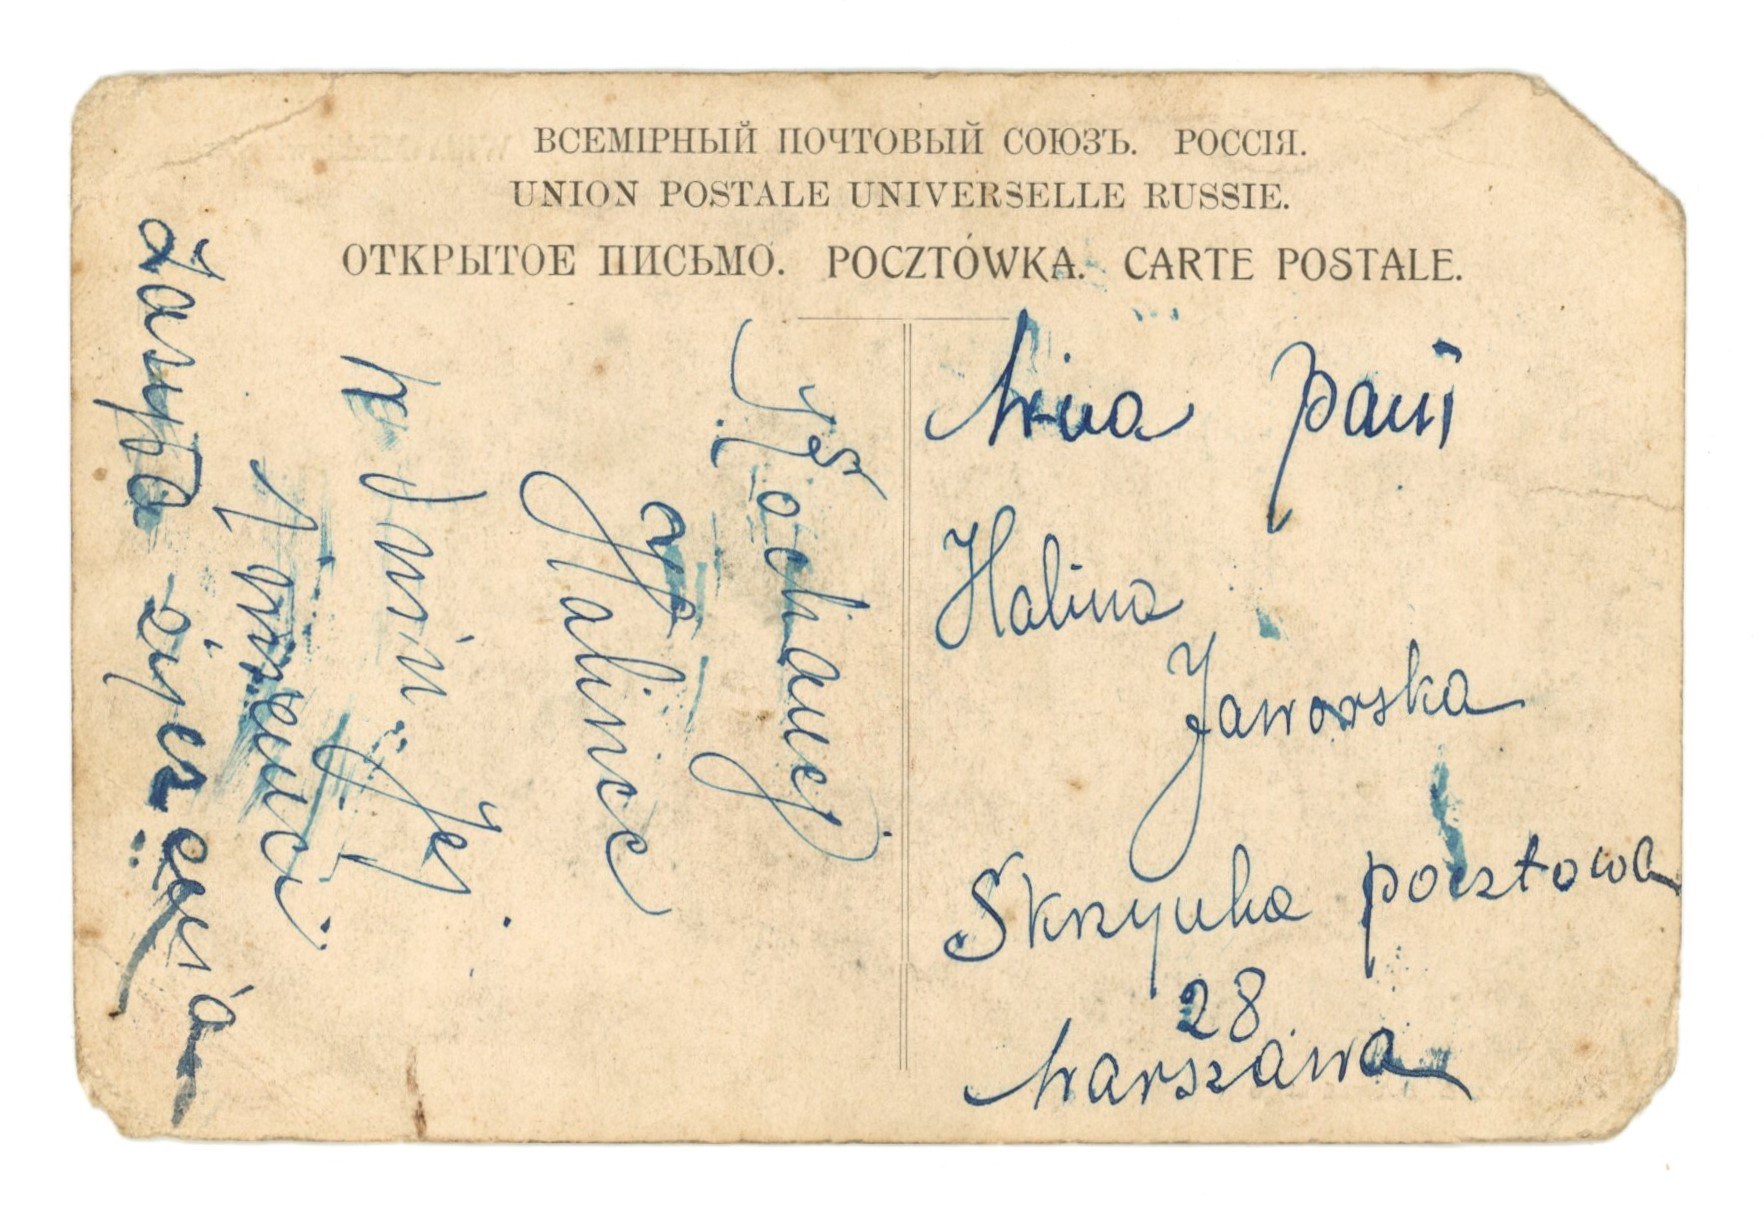 ВСЕМІРНЫЙ ПОЧТОВЫЙ СОЮЗЪ. РОССІЯ.
UNION POSTALE UNIVERSELLE RUSSIE.
ОТКРЫТОЕ ПИСЬМО. POCZTÓWKA. CARTE POSTALE.
Kochanej
Halince
w dniu Jej
zasyła życzenia
Wna pani
Halina
Jaworska
Skrzynka pocztowa
28
Warszawa